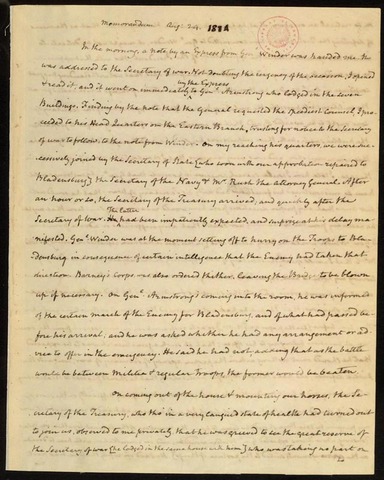 Memorandum Aug. 24. 1814
In the morning, a note by an Express from Genl Winder was handed me. It
was addressed to the Secretary of war. Not doubting the urgency of the occasion, I opened
by the Express
& read it, and it went on immediately to Genl. Armstrong who lodged in the seven
Buildings. Finding by the note that the General requested the speediest Counsel, I pro-
ceeded to his Head Quarters on the Eastern Branch, trusting for notice to the Secretary
of war to follow, to the note from Winder. On my reaching his quarters, we were suc-
cessively joined by the Secretary of State [who soon with our approbation repaired to
Bladensburg] the Secretary of the Navy & Mr. Rush the Attorney General. After
an hour or so, the Secretary of the Treasury arrived, and quickly after the
The latter
Secretary of War. had been impatiently expected, and surprize at his delay ma-
nifested. Genl. Winder was at the moment setting off to hurry on the Troops to Bla-
densburg in consequence of certain intelligence that the Enemy had taken that
direction. Barney's Corps was also ordered thither, leaving the Bridge to be blown
up if necessary. On Genl. Armstrong's coming into the room, he was informed
of the certain march of the Enemy for Bladensburg, and of what had passed be-
fore his arrival; and he was asked whether he had any arrangement or ad-
vice to offer in the emergency. He said he had not; adding that as the battle
would be between Militia & regular Troops, the former would be beaten.
On coming out of the house & mounting our horses, the Se-
cretary of the Treasury, who tho' in a very languid state of health had turned out
to join us, observed to me privately that he was grieved to see the great reserve of
the Secretary of war [he lodged in the same house with him] who was taking no part on